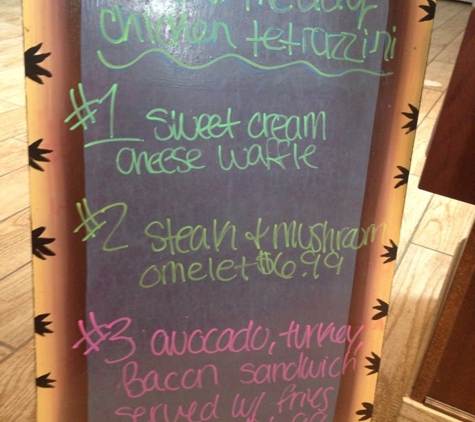 chicken tetrazzini
#1 Sweet cream
cheese waffle
#2 steak & mushroom
omelet $6.99
#3 avocado, turkey,
Bacon sandwich
served w/ fries